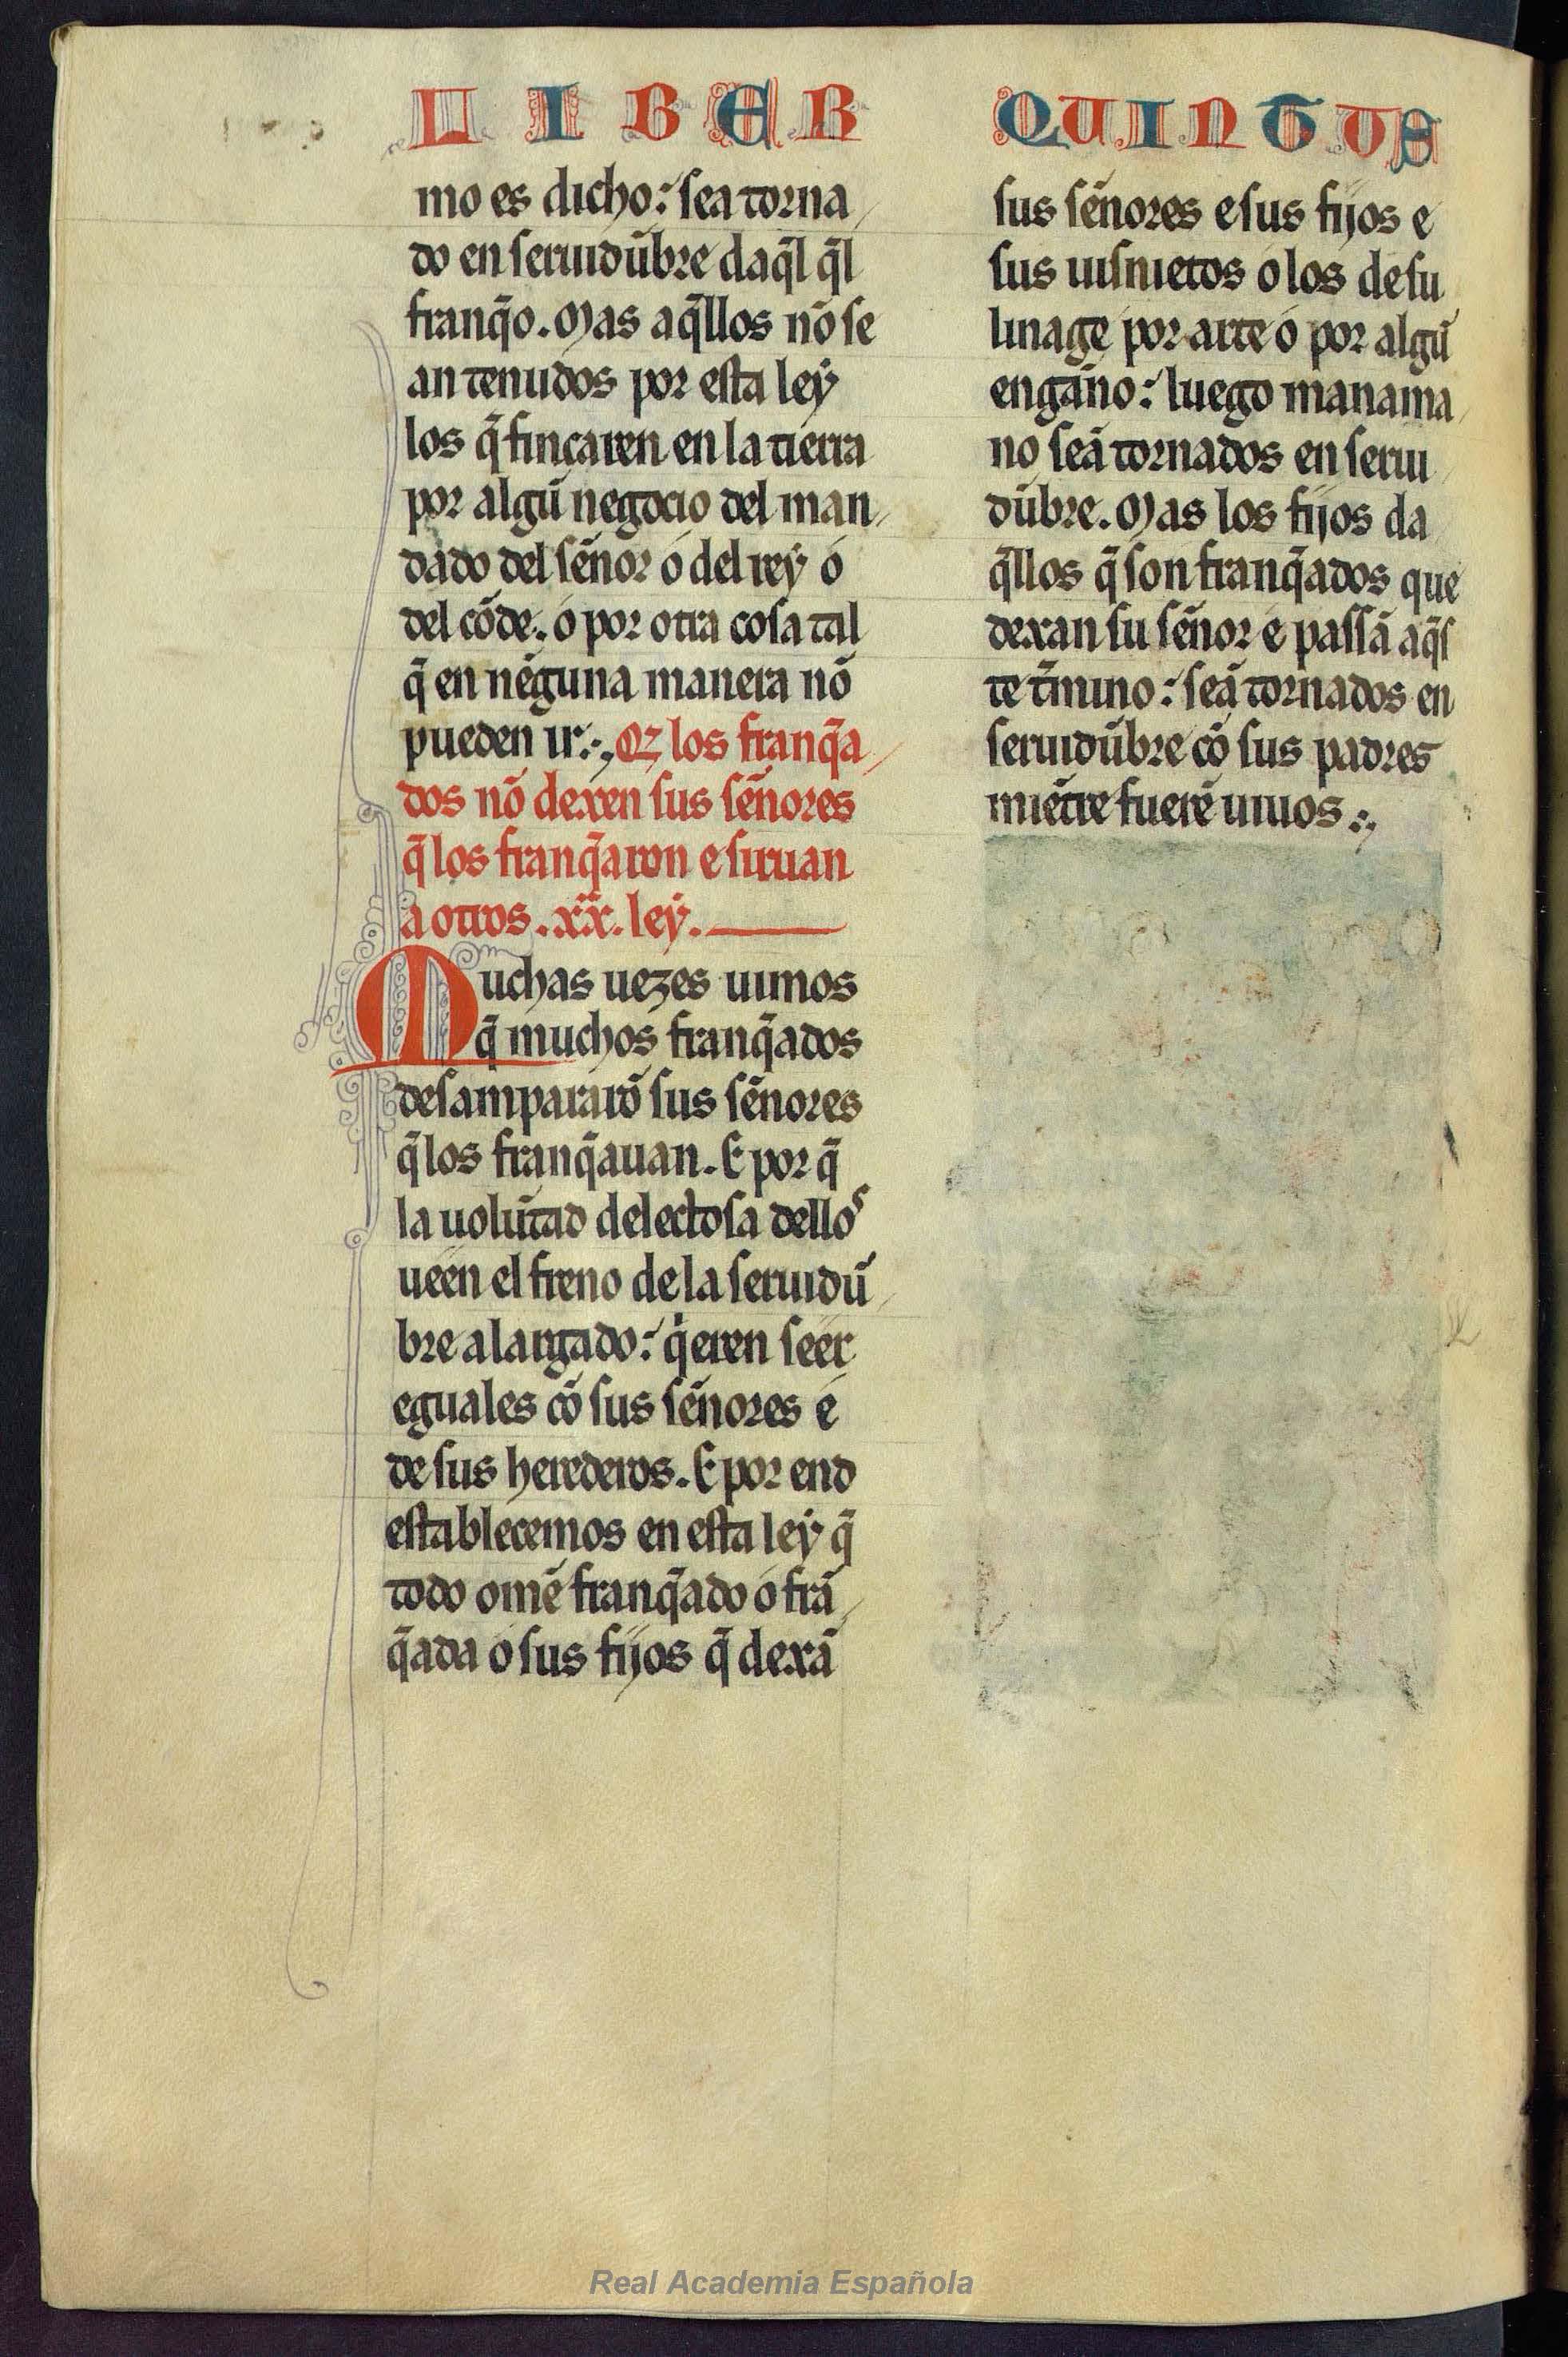 LIBER QUINTUS
mo es dicho: sea torna
do en seruidũbre daq̃l q̃l
franq̃o. Mas aq̃llos nõ se
an tenudos por esta leẏ
los q̃ fincaren en la tierra
por algũ negocio del man
dado del sẽnor o del reẏ o
del cõde. o por otra cosa tal
q̃ en nẽguna manera nõ
pueden ir. Qz los franq̃a
dos nõ dexen sus sẽnores
q̃ los franq̃aron e siruan
a otros. xx. leẏ.
Muchas uezes uimos
q̃ muchos franq̃ados
desampararõ sus sẽnores
q̃ los franq̃auan. E por q̃
la uolũtad delectosa dellos
ueen el freno de la seruidũ
bre alargado: q̃eren seer
eguales cõ sus sẽnores e
de sus herederos. E por end
establecemos en esta leẏ q̃
todo omẽ franq̃ado o frã
q̃ada o sus fijos q̃ dexã
sus sẽnores e sus fijos e
sus uisnietos o los de su
linage por arte o por algũ
engãno: luego manama
no seã tornados en serui
dũbre. Mas los fijos da
q̃llos q̃ son franq̃ados que
dexan su sẽnor e passã aq̃s
te t̃mino: seã tornados en
seruidũbre cõ sus padres
miẽtre fuerẽ uiuos.
Real Academia Española